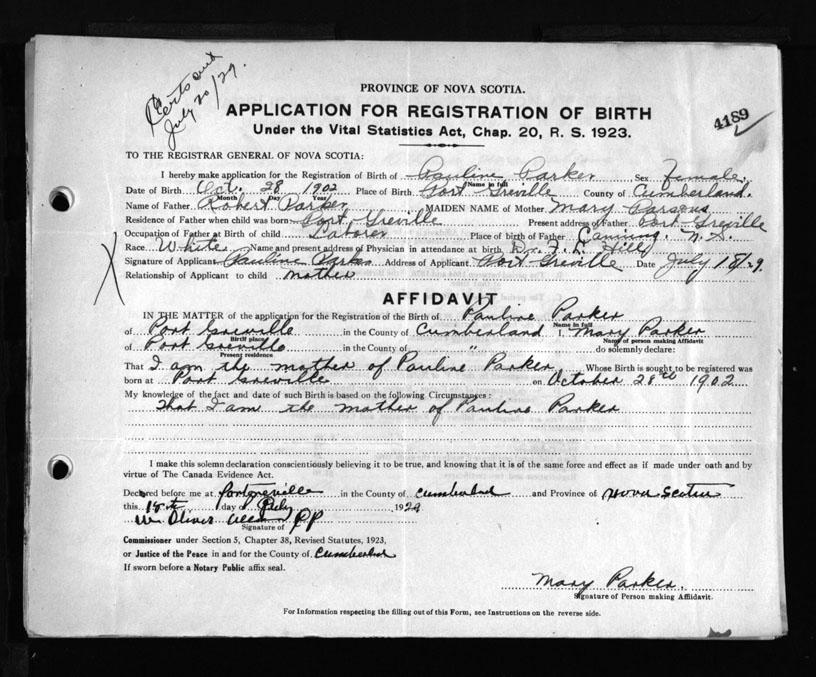 Certs out
July 20/29.
PROVINCE OF NOVA SCOTIA.
APPLICATION FOR REGISTRATION OF BIRTH
4189
Under the Vital Statistics Act, Chap. 20, R. S. 1923.
TO THE REGISTRAR GENERAL OF NOVA SCOTIA:
I hereby make application for the Registration of Birth of Pauline Parker Sex female.
Name in full
Date of Birth Oct. 28 1902 Place of Birth Port Greville County of Cumberland.
Month Day Year
Name of Father Robert Parker MAIDEN NAME of Mother Mary Parsons
Residence of Father when child was born Port Greville Present address of Father Port Greville
Occupation of Father at Birth of child Laborer Place of birth of Father Canning. N.S.
Race White Name and present address of Physician in attendance at birth Dr. F. L. Hill
Signature of Applicant Pauline Parker Address of Applicant Port Greville Date July 18/29
Relationship of Applicant to child mother
X
AFFIDAVIT
IN THE MATTER of the application for the Registration of the Birth of Pauline Parker
Name in full
of Port Greville in the County of Cumberland I, Mary Parker
Birth place Name of person making Affidavit
of Port Greville in the County of " do solemnly declare:
Present residence
That I am the mother of Pauline Parker Whose Birth is sought to be registered was
born at Port Greville on October 28th 1902
My knowledge of the fact and date of such Birth is based on the following Circumstances:
That I am the mother of Pauline Parker
I make this solemn declaration conscientiously believing it to be true, and knowing that it is of the same force and effect as if made under oath and by
virtue of The Canada Evidence Act.
Declared before me at portgreville in the County of Cumberland and Province of Nova Scotia
this 18th day of July 1929
W. Oliver JP
Signature of
Commissioner under Section 5, Chapter 38, Revised Statutes, 1923,
or Justice of the Peace in and for the County of Cumberland
If sworn before a Notary Public affix seal.
Mary Parker.
Signature of Person making Affidavit.
For Information respecting the filling out of this Form, see Instructions on the reverse side.